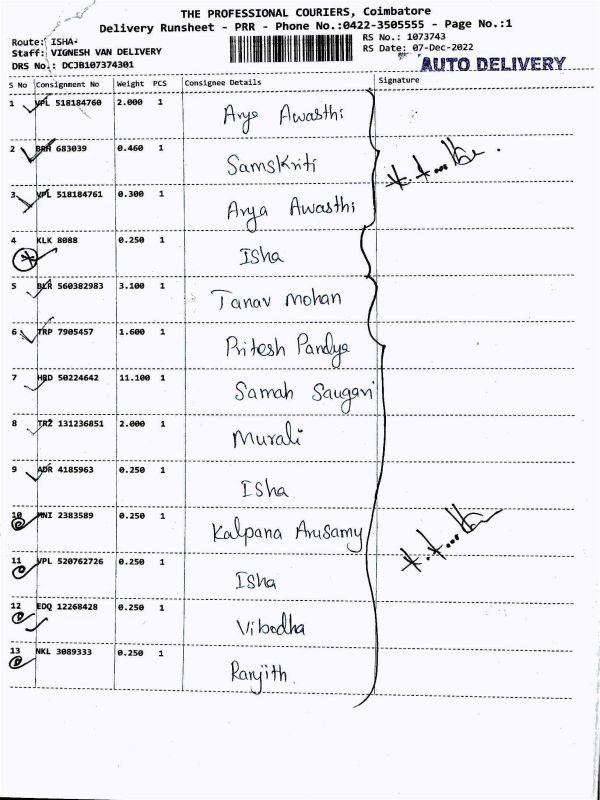 THE PROFESSIONAL COURIERS, Coimbatore
Delivery Runsheet - PRR - Phone No.:0422-3505555 - Page No.:1
Route: ISHA-
RS No.: 1073743
Staff: VIGNESH VAN DELIVERY
RS Date: 07-Dec-2022
DRS No.: DCJB107374301
AUTO DELIVERY
S No Consignment No Weight PCS Consignee Details Signature
1 VPL 518184760 2.000 1 Arya Awasthi
2 BRH 683039 0.460 1 Samskriti
3 VPL 518184761 0.300 1 Arya Awasthi
4 KLK 8088 0.250 1 Isha
5 BLR 560382983 3.100 1 Tanav Mohan
6 TRP 7905457 1.600 1 Pritesh Pandya
7 HRD 50224642 11.100 1 Samah Saugari
8 TRZ 131236851 2.000 1 Murali
9 ADR 4185963 0.250 1 Isha
10 MNI 2383589 0.250 1 Kalpana Arusamy
11 VPL 520762726 0.250 1 Isha
12 EDQ 12268428 0.250 1 Vibodha
13 NKL 3089333 0.250 1 Ranjith